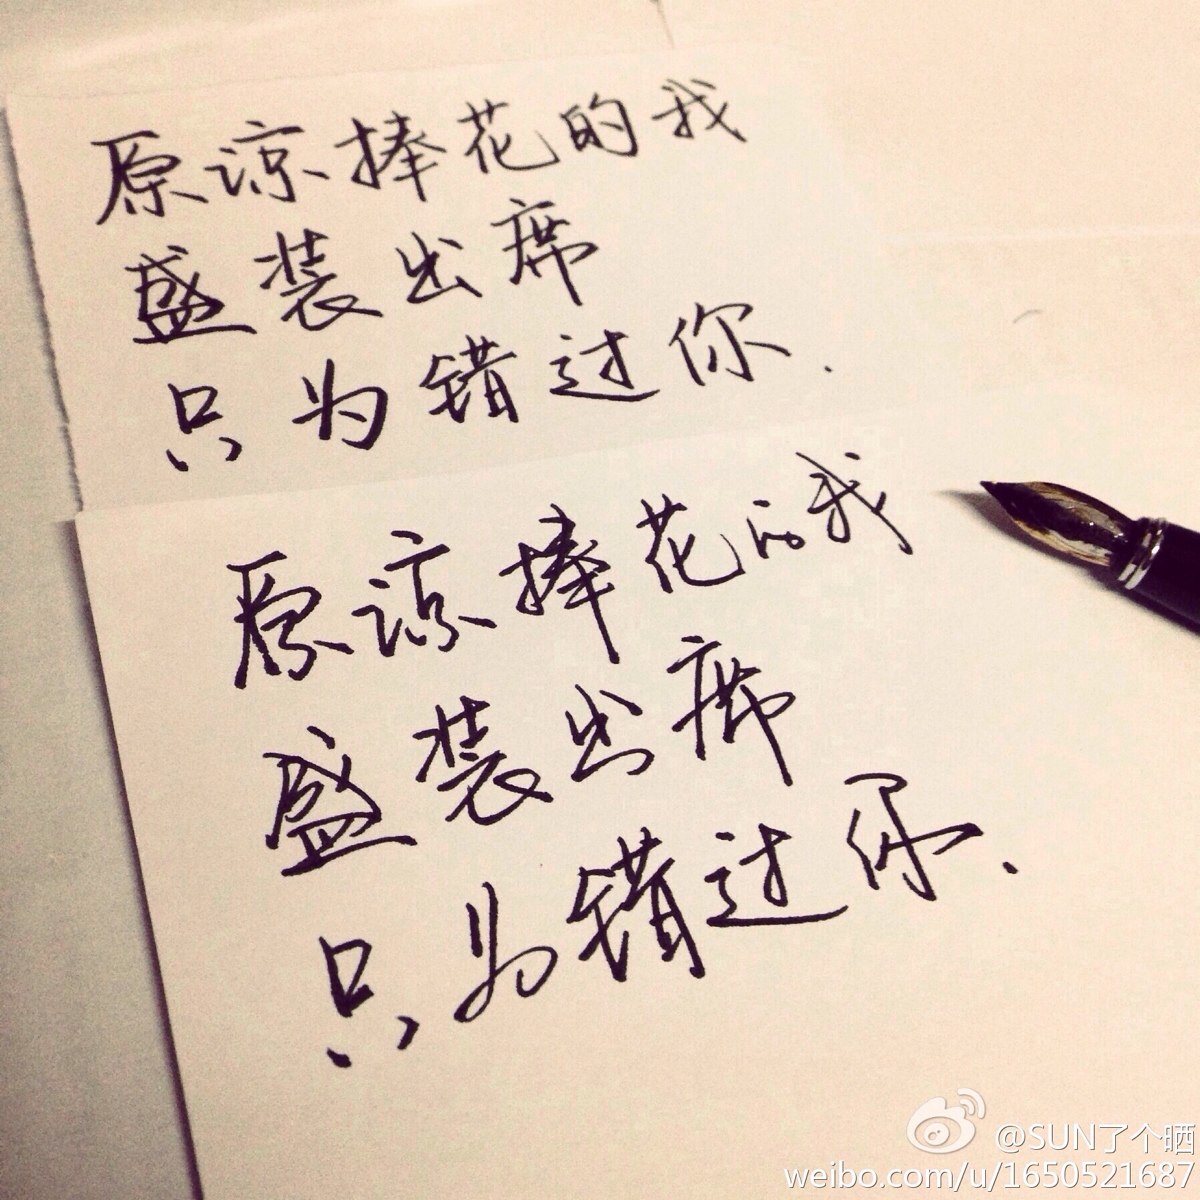 原谅捧花的我
盛装出席
只为错过你.
原谅捧花的我
盛装出席
只为错过你.
@SUN了个晒
weibo.com/u/1650521687